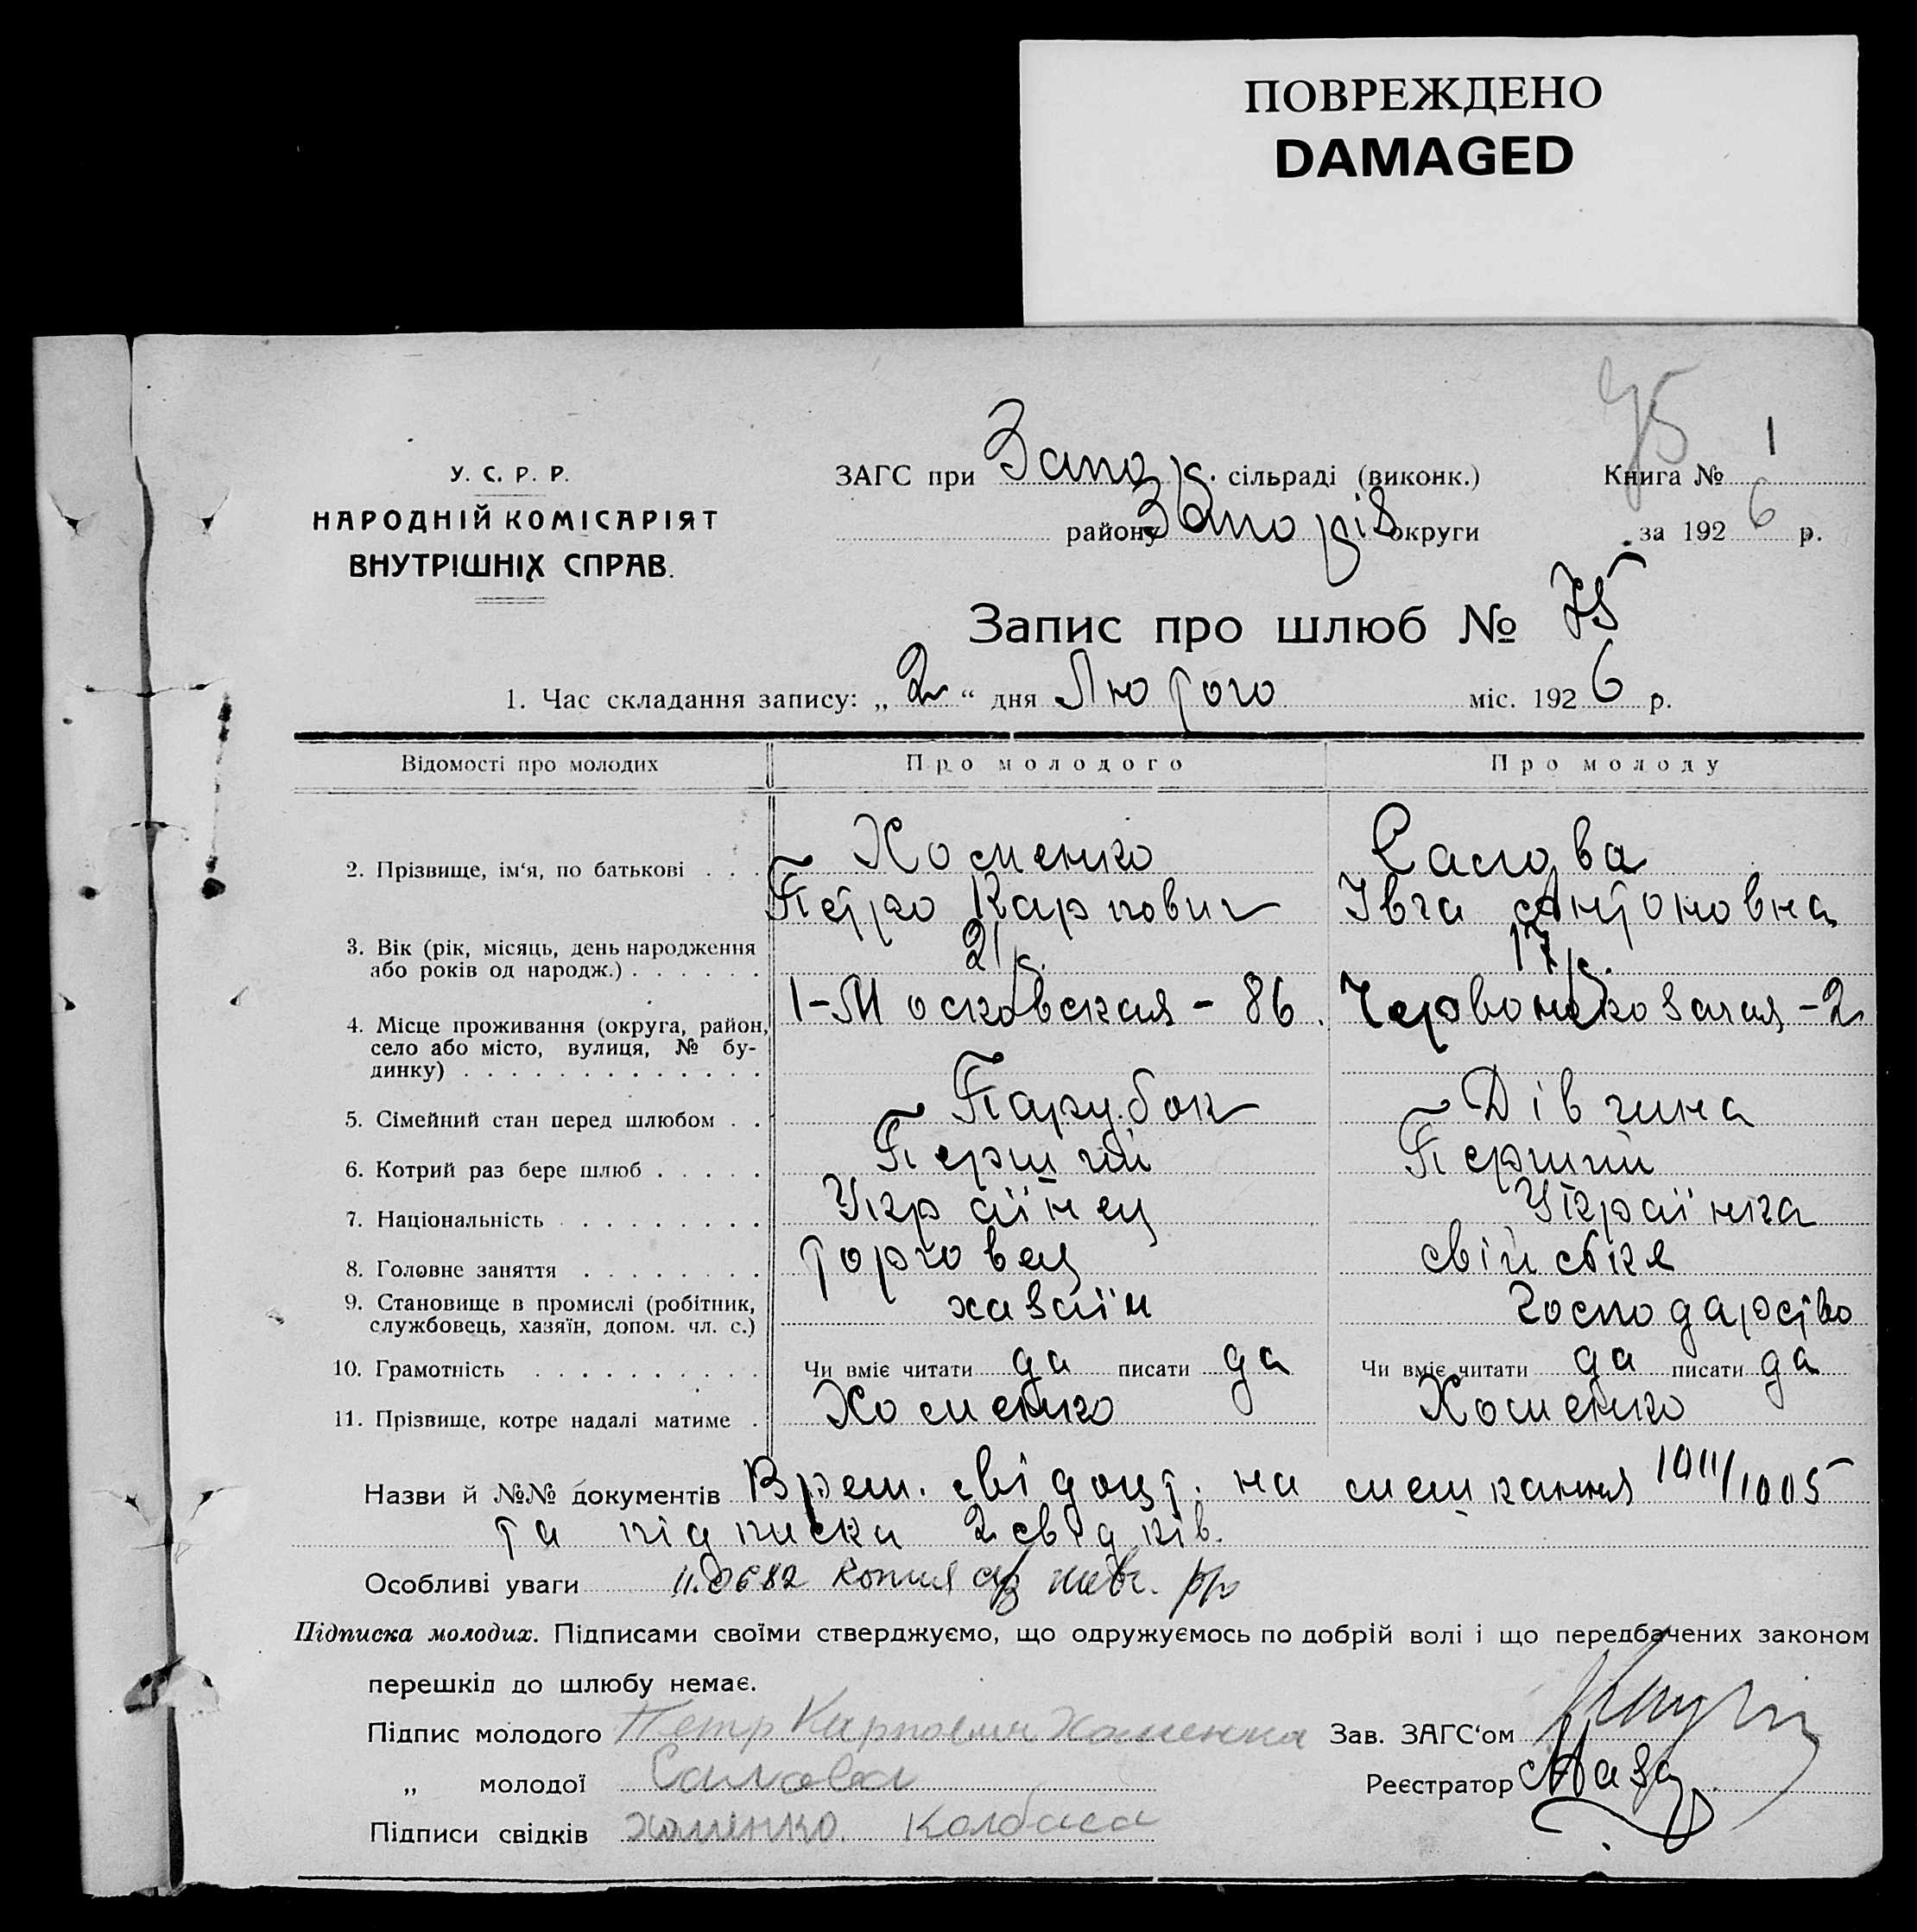 ПОВРЕЖДЕНО
DAMAGED
75
У. С. Р. Р.
НАРОДНІЙ КОМІСАРІЯТ
ВНУТРІШНІХ СПРАВ.
ЗАГС при Запор. сільраді (виконк.)
району Запоріз округи
Книга № 1
за 1926 р.
Запис про шлюб № 75
1. Час складання запису: „2“ дня Лютого міс. 1926 р.
Відомості про молодих Про молодого Про молоду
2. Прізвище, ім‘я, по батькові . . . Хоменко Салова
Петро Карпович Івга Антоновна
3. Вік (рік, місяць, день народження
або років од народж.) . . . . . . 21 р. 17 р.
4. Місце проживання (округа, район, 1-Московская - 86. -2
село або місто, вулиця, № бу-
динку) . . . . . . . . . . . . .
5. Сімейний стан перед шлюбом . . Парубок Дівчина
6. Котрий раз бере шлюб . . . . . Перший Перший
7. Національність . . . . . . . . . Українец Українка
8. Головне заняття . . . . . . . . торговец
9. Становище в промислі (робітник,
службовець, хазяїн, допом. чл. с.) хазаїн господарство
10. Грамотність . . . . . . . . . . Чи вміє читати да писати да Чи вміє читати да писати да
11. Прізвище, котре надалі матиме . Хоменко Хоменко
Назви й №№ документів Врем. свідоцт. на мешкання 1911/1005
та підписка 2 свідків.
Особливі уваги копия
Підписка молодих. Підписами своїми стверджуємо, що одружуємось по добрій волі і що передбачених законом
перешкід до шлюбу немає.
Підпис молодого Петр Карпович Хоменка Зав. ЗАГС‘ом
„ молодої Салова Реєстратор
Підписи свідків Хоменко. Колбаса